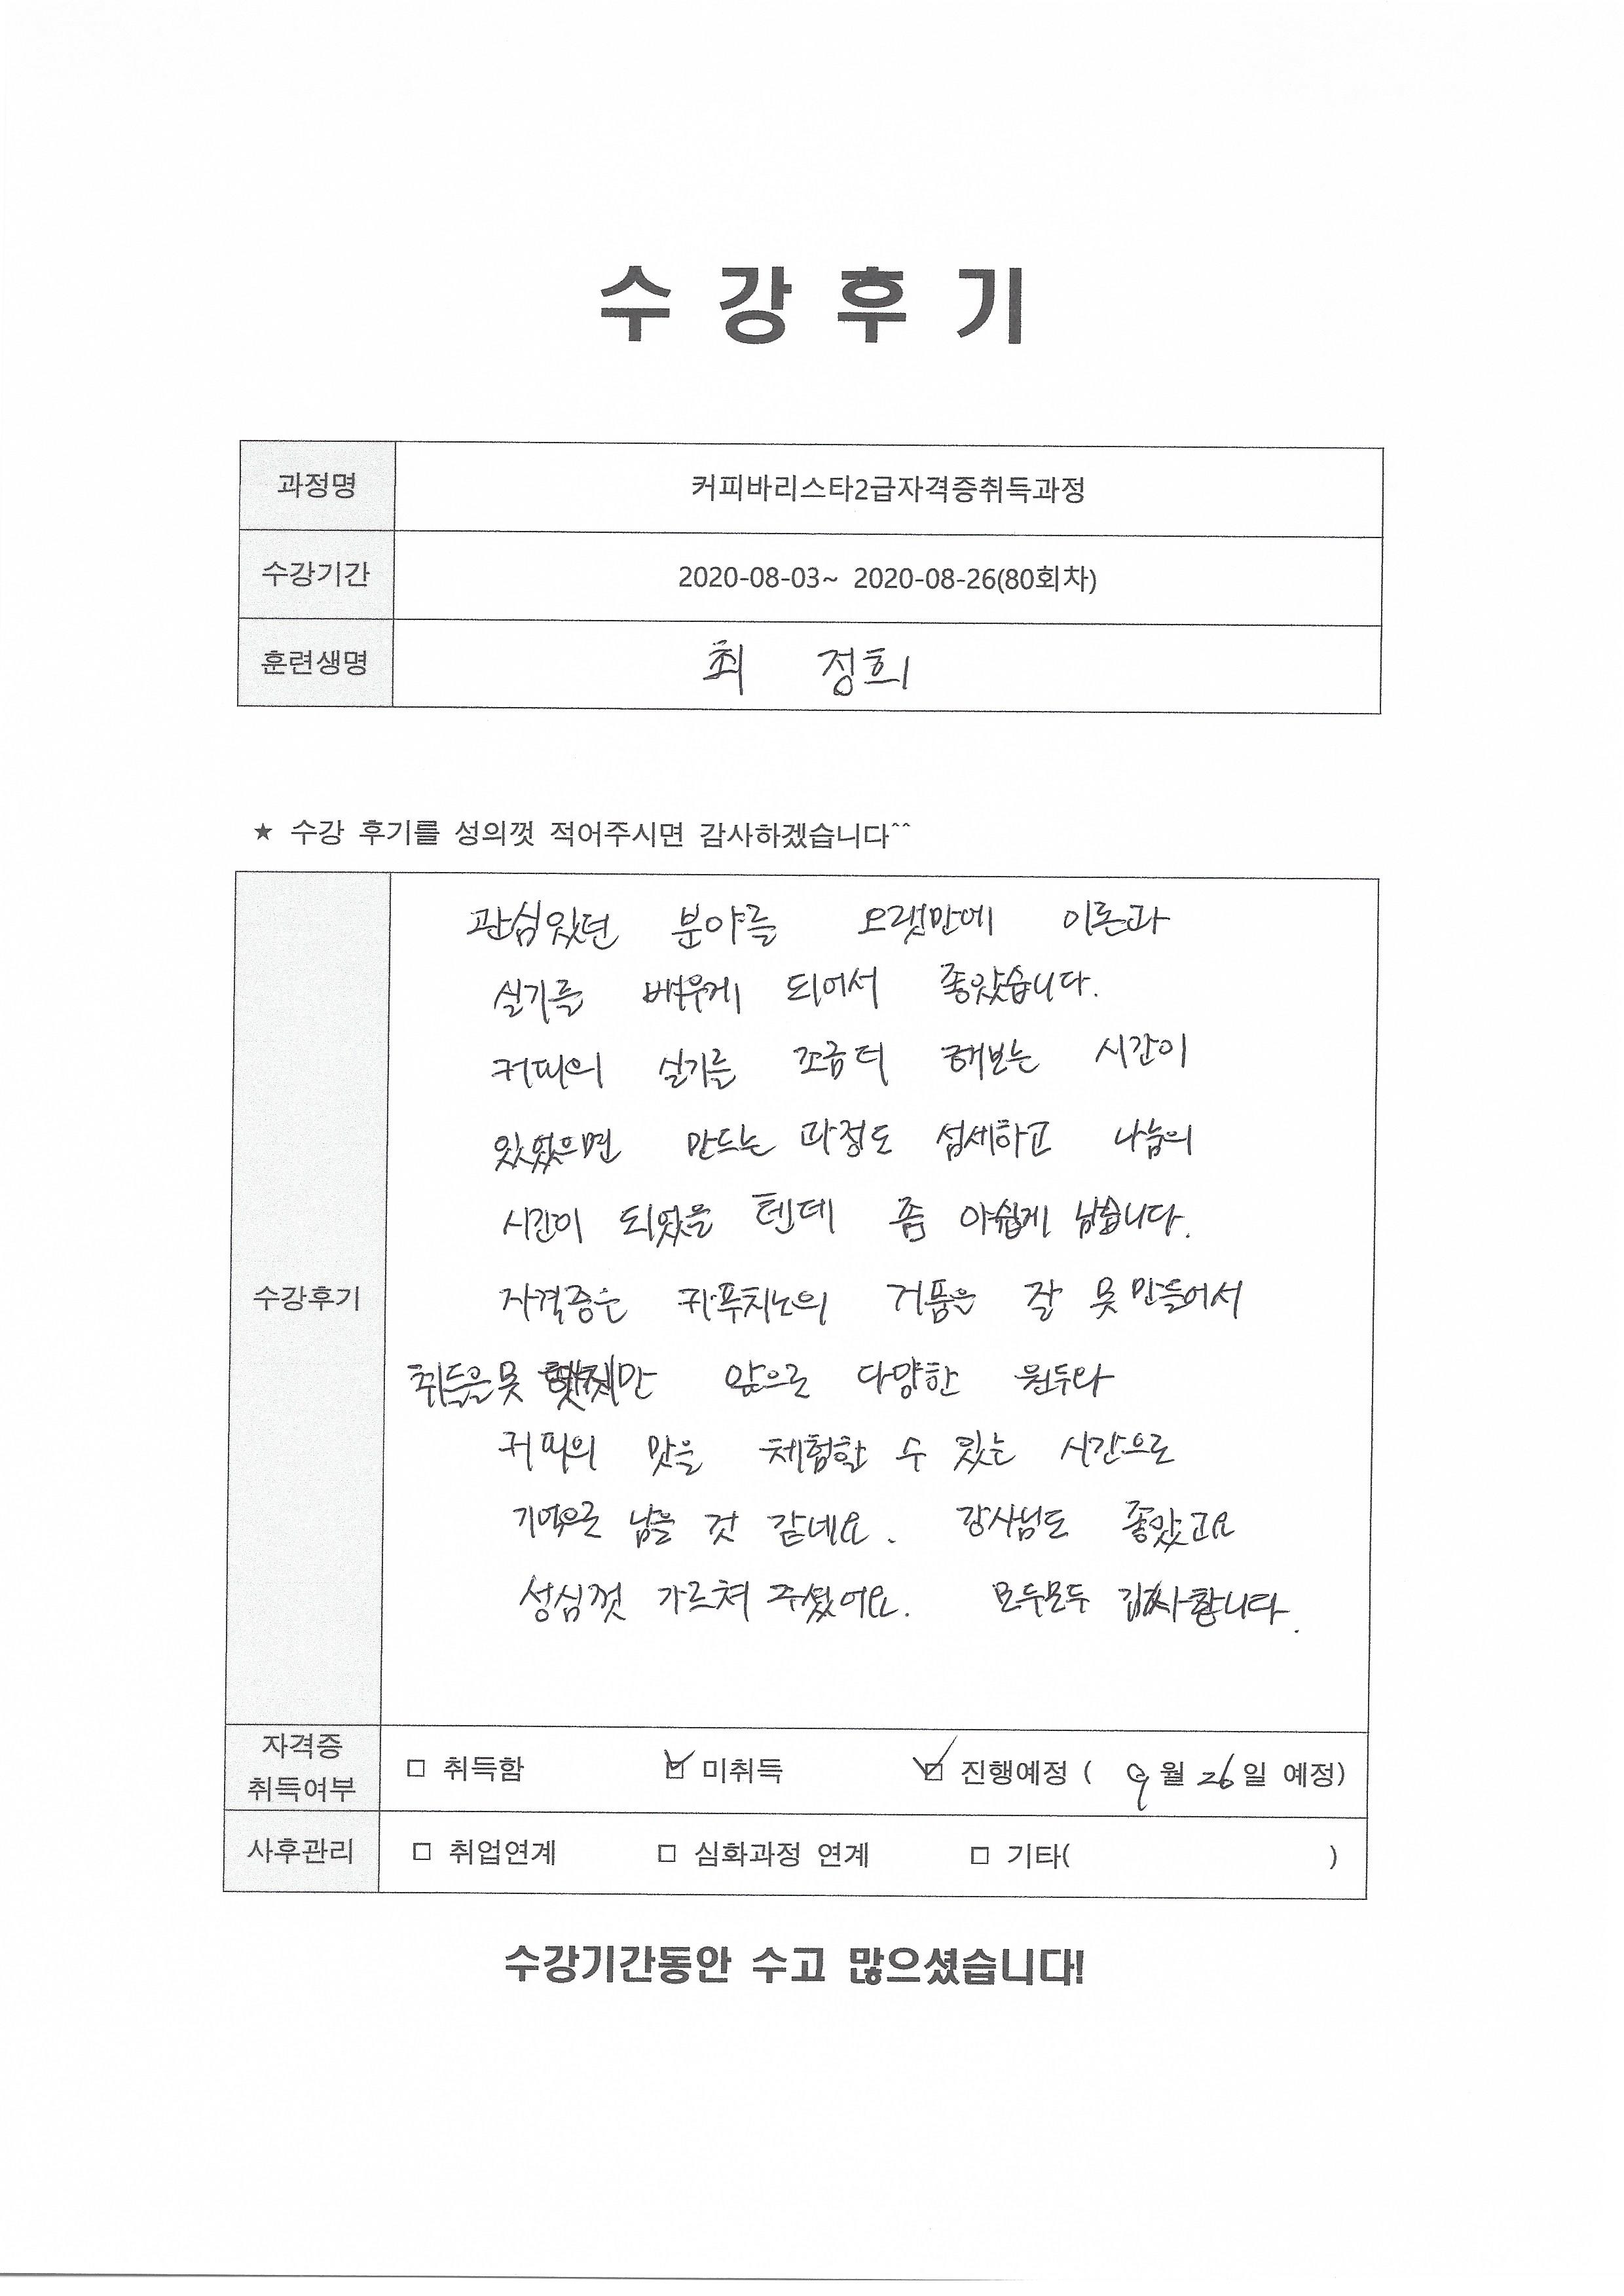 수강후기
과정명 커피바리스타2급자격증취득과정
수강기간 2020-08-03~ 2020-08-26(80회차)
훈련생명 최 정희
★ 수강 후기를 성의껏 적어주시면 감사하겠습니다^^
관심있던 분야를 오랫만에 이론과
실기를 배우게 되어서 좋았습니다.
커피의 실기를 조금 더 해보는 시간이
있었으면 만드는 과정도 섬세하고 나눔의
시간이 되었을 텐데 좀 아쉽게 남습니다.
수강후기
자격증은 카푸치노의 거품을 잘 못 만들어서
취득을 못 했지만 앞으로 다양한 원두와
커피의 맛을 체험할 수 있는 시간으로
기억으로 남을 것 같네요. 강사님도 좋았고요
성심껏 가르쳐 주셨어요. 모두모두 감사합니다.
자격증
취득여부
□ 취득함 ☑ 미취득 ☑ 진행예정 ( 9월 26일 예정)
사후관리 □ 취업연계 □ 심화과정 연계 □ 기타( )
수강기간동안 수고 많으셨습니다!